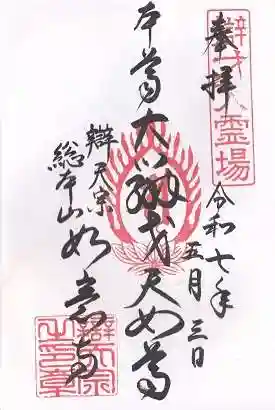 奉拝
令和七年
五月三日
本尊大辯才天女尊
辯天宗
総本山如意寺
霊場